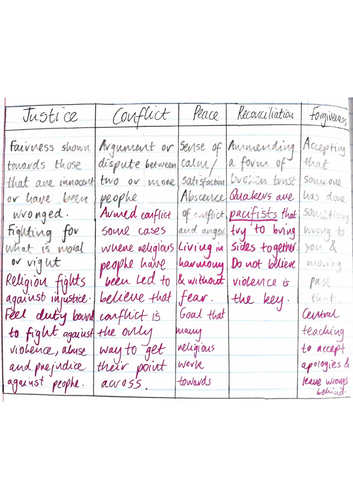 Justice
Fairness shown
towards those
that are innocent
or have been
wronged.
Fighting for
what is moral
or right
Religion fights
against injustice.
Feel duty band
to fight against
violence, abuse
and prejudice
against people.
Conflict
Argument or
dispute between
two or more
people
Armed conflict
some cases
where religious
people have
been led to
believe that
conflict is
the only
way to get
their point
across.
Peace
Sense of
calm/
satisfaction
Abscence
of conflict
and anger
Living in
harmony
& without
fear.
Goal that
many
religious
work
towards
Reconciliation
Ammending
a form of
broken trust
Quakers are
pacifists that
try to bring
sides together
Do not believe
violence is
the key.
Forgiveness
Accepting
that
someone
has done
something
wrong to
you &
moving
past
that.
Central
teaching
to accept
apologies &
leave wrongs
behind.